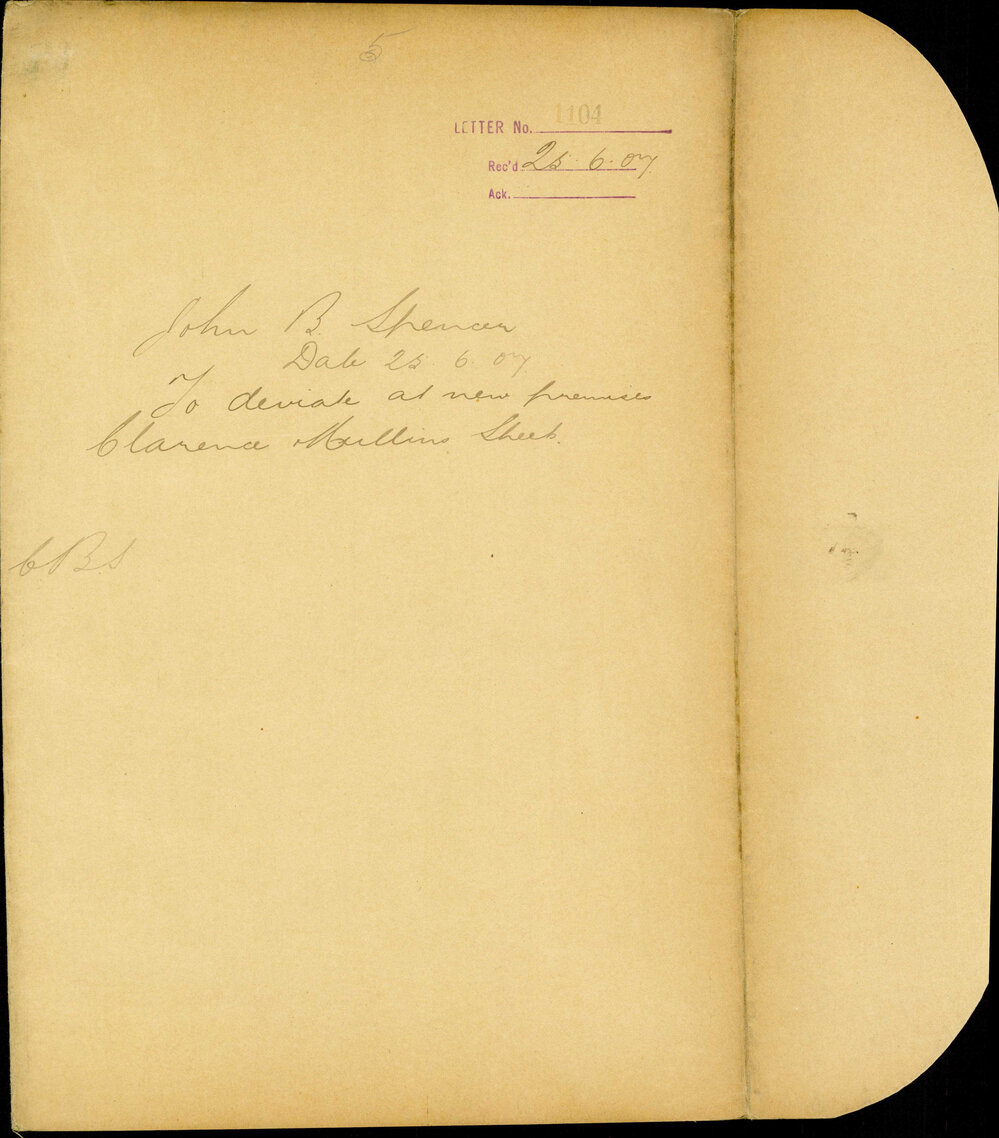 5
LETTER No. 1104
Rec'd 25.6.07
Ack.
John B. Spencer
Date 25.6.07
To deviate at new premises
Clarence Mullins Street.
CBS